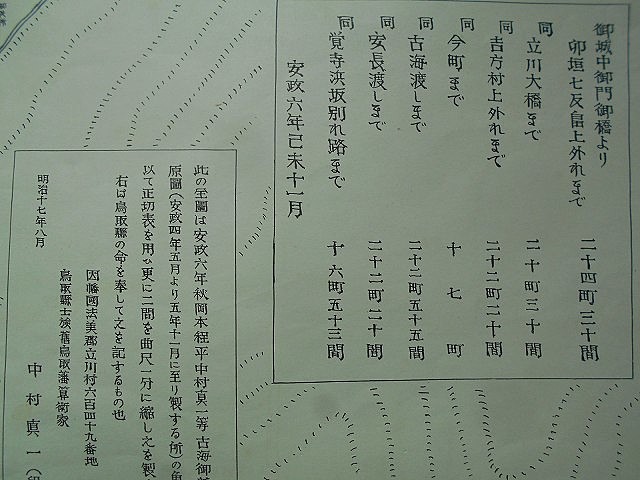 御城中御門御橋より
卯垣七反畠上外れまで 二十四町三十間
同 立川大橋まで 二十町三十間
同 吉方村上外れまで 二十二町二十間
同 今町まで 十七町
同 古海渡しまで 二十二町五十五間
同 安長渡しまで 二十二町二十間
同 覚寺浜坂別れ路まで 十六町五十三間
安政六年己未十一月
此の全圖は安政六年秋岡本経平中村真一等古海御
原圖(安政四年五月より五年十一月に至り製する所)の
以て正切表を用ひ更に二間を曲尺一分に縮し之を製
右は鳥取縣の命を奉して之を記するもの也
明治十七年八月
因幡國法美郡立川村六百四十九番地
鳥取縣士族舊鳥取藩算術家
中村真一